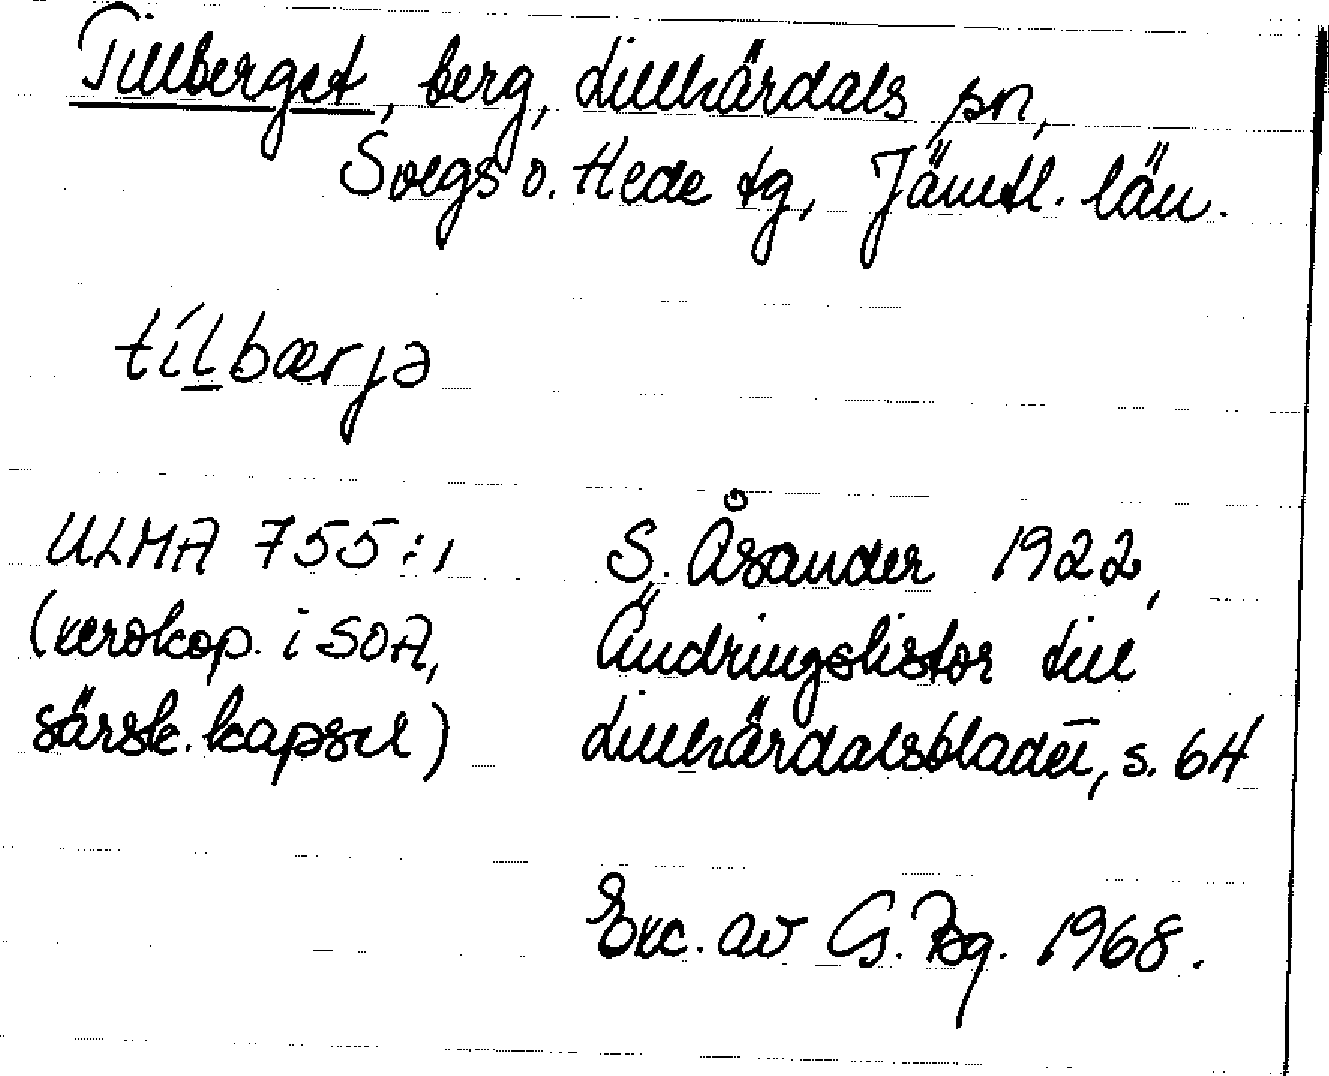 Tillberget, berg, Lillhärdals sn,
Svegs o. Hede tg, Jämtl. län.
tílbærjə
ULMA 755:1
(xerokop. i SOA,
särsk. kapsel)
S. Åsander 1922,
Ändringslistor till
Lillhärdalsbladet, s. 64
Exc. av G. Bg. 1968.